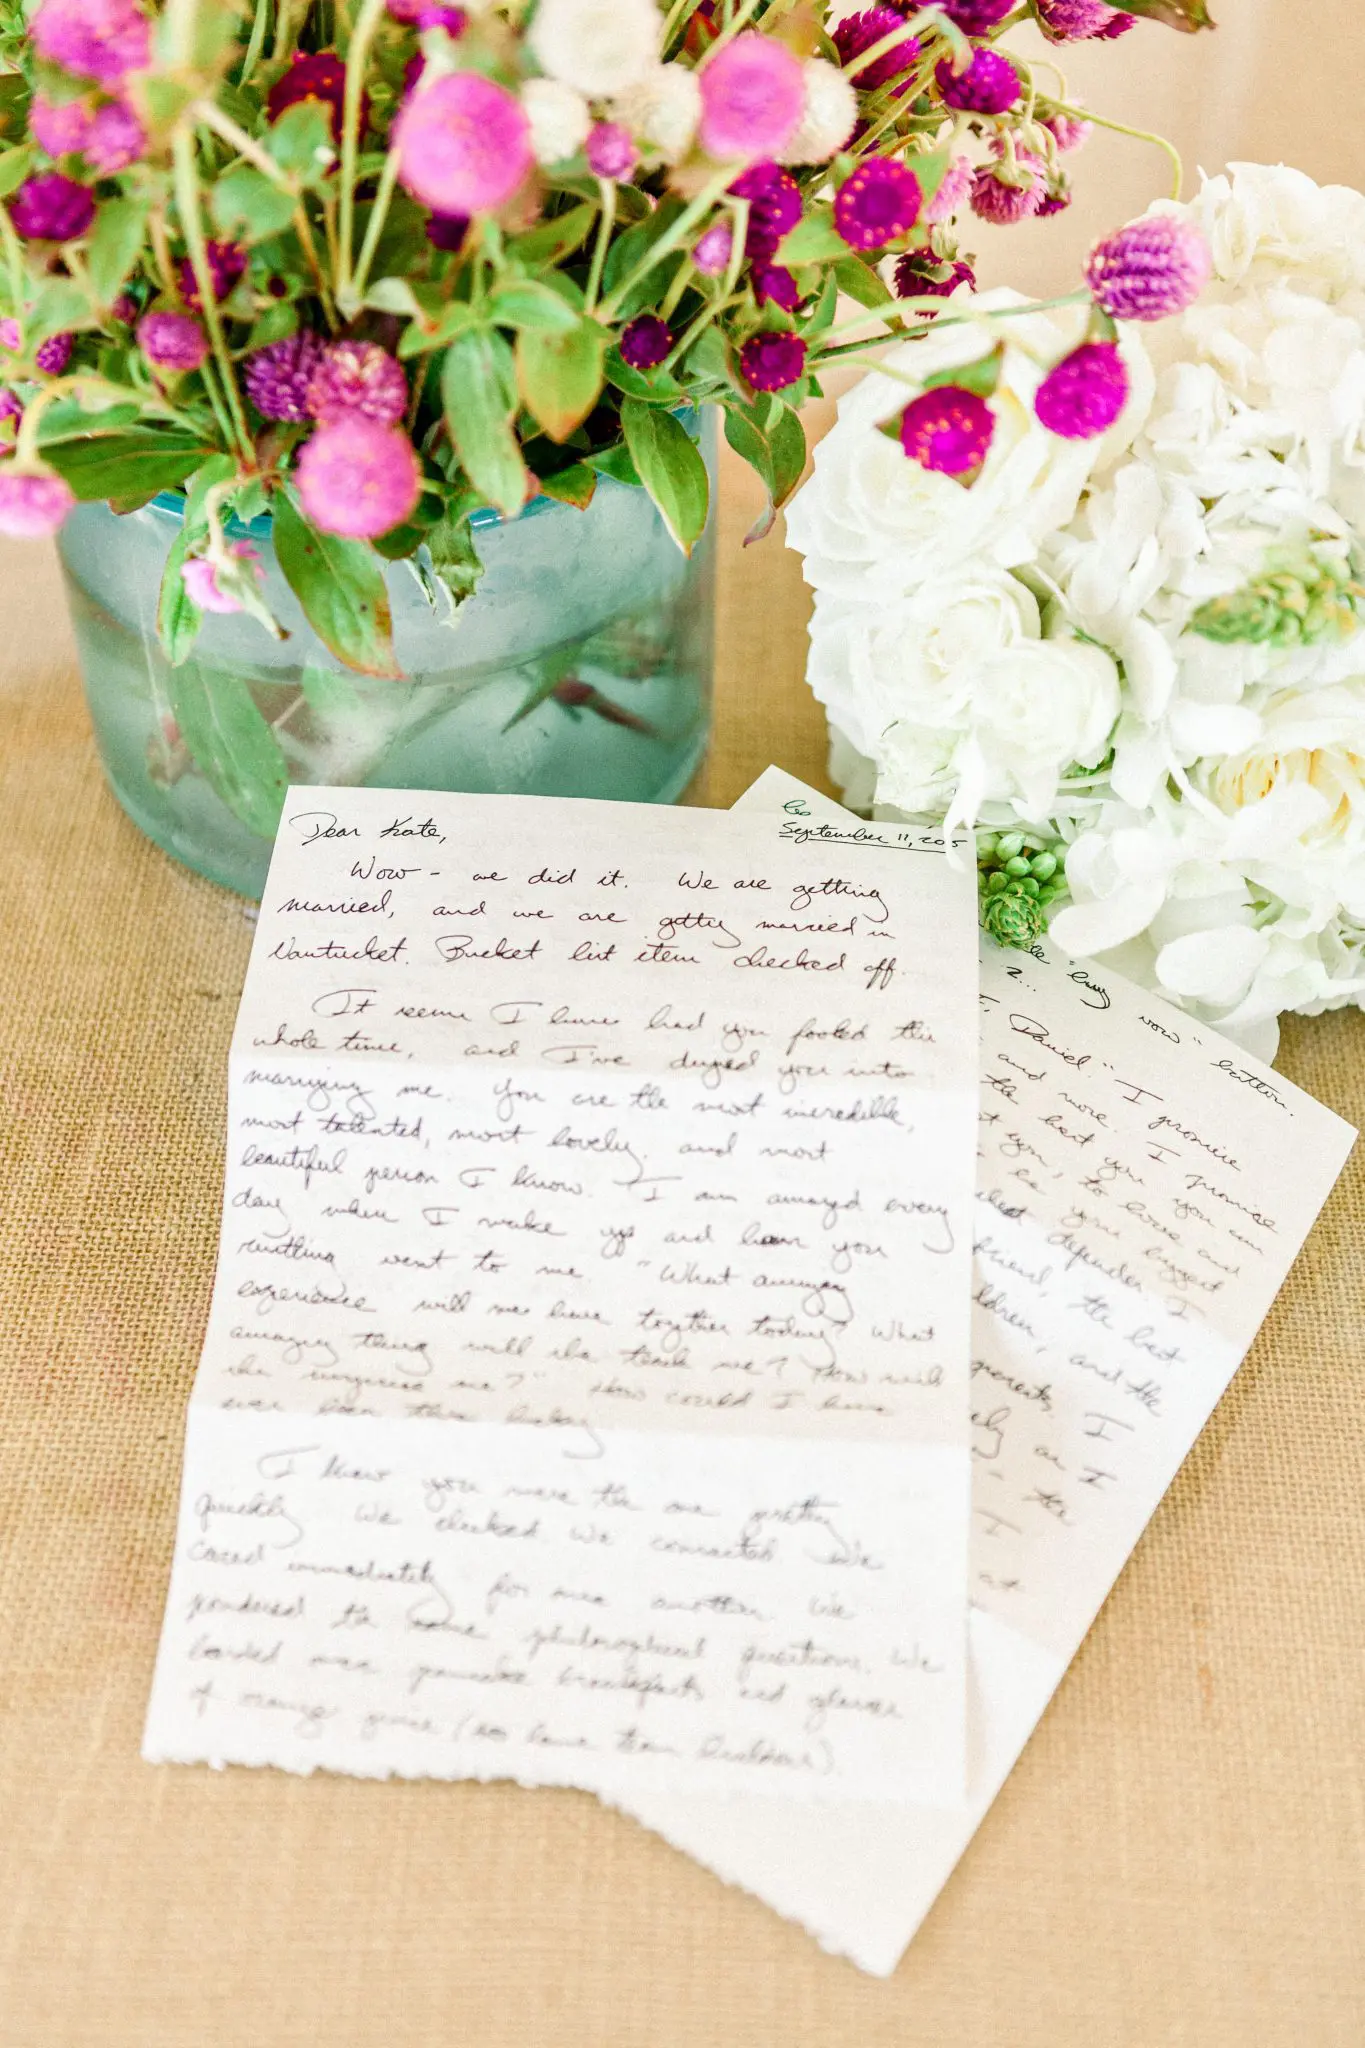 Dear Kate,
September 11, 2015
Wow - we did it. We are getting
married, and we are getting married in
Nantucket. Bucket list item checked off.
It seems I have had you fooled this
whole time, and I've duped you into
marrying me. You are the most incredible,
most talented, most lovely, and most
beautiful person I know. I am amazed every
day when I wake up and have you
rustling next to me. "What amazing
experience will we have together today? What
amazing thing will she teach me? How will
she surprise me?" How could I have
ever been this lucky
I knew you were the one pretty
quickly. We clicked. We connected. We
cared immediately for one another. We
pondered the some philosophical questions. We
bonded over pancake breakfasts and glasses
of orange juice (
"buy now" button.
Daniel." I promise
and more. I promise
the best you you can
you, to love and
you biggest
depender. I
friend, the best
and the
parents. I
as I
the
I
at